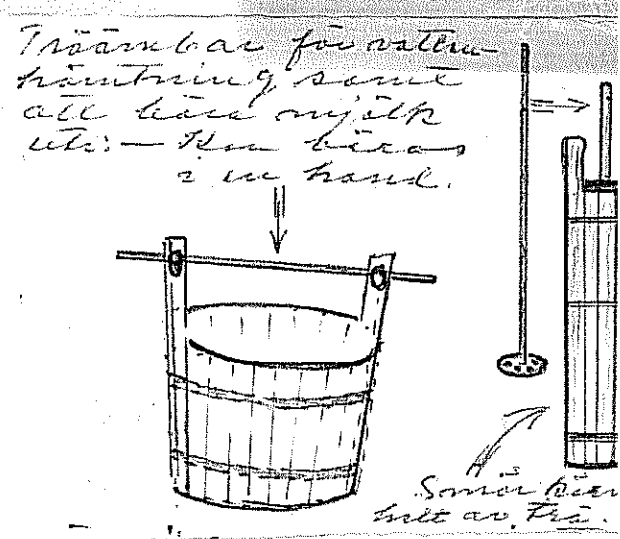 Träämbar för vatten-
hämtning samt
att bära mjölk
uti: — Kan bäras
i en hand.
Smör kärn
helt av Trä.